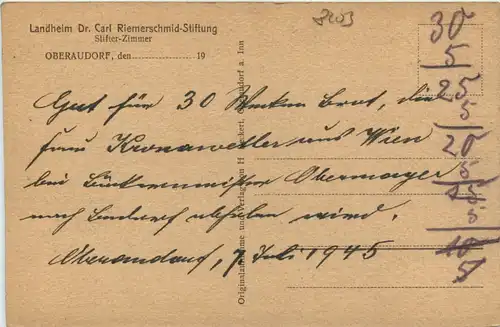 Landheim Dr. Carl Riemerschmid-Stiftung
Stifter-Zimmer
OBERAUDORF, den 19
8203
Gut für 30 Wecken Brot, die
Frau Kronawetter aus Wien
bei Bäckermeister Obermayer
nach Bedarf abholen wird.
Oberaudorf, 7. Juli 1945
Originalaufnahme und Verlag von H
a. Inn
30
5
25
5
20
5
15
5
10
5